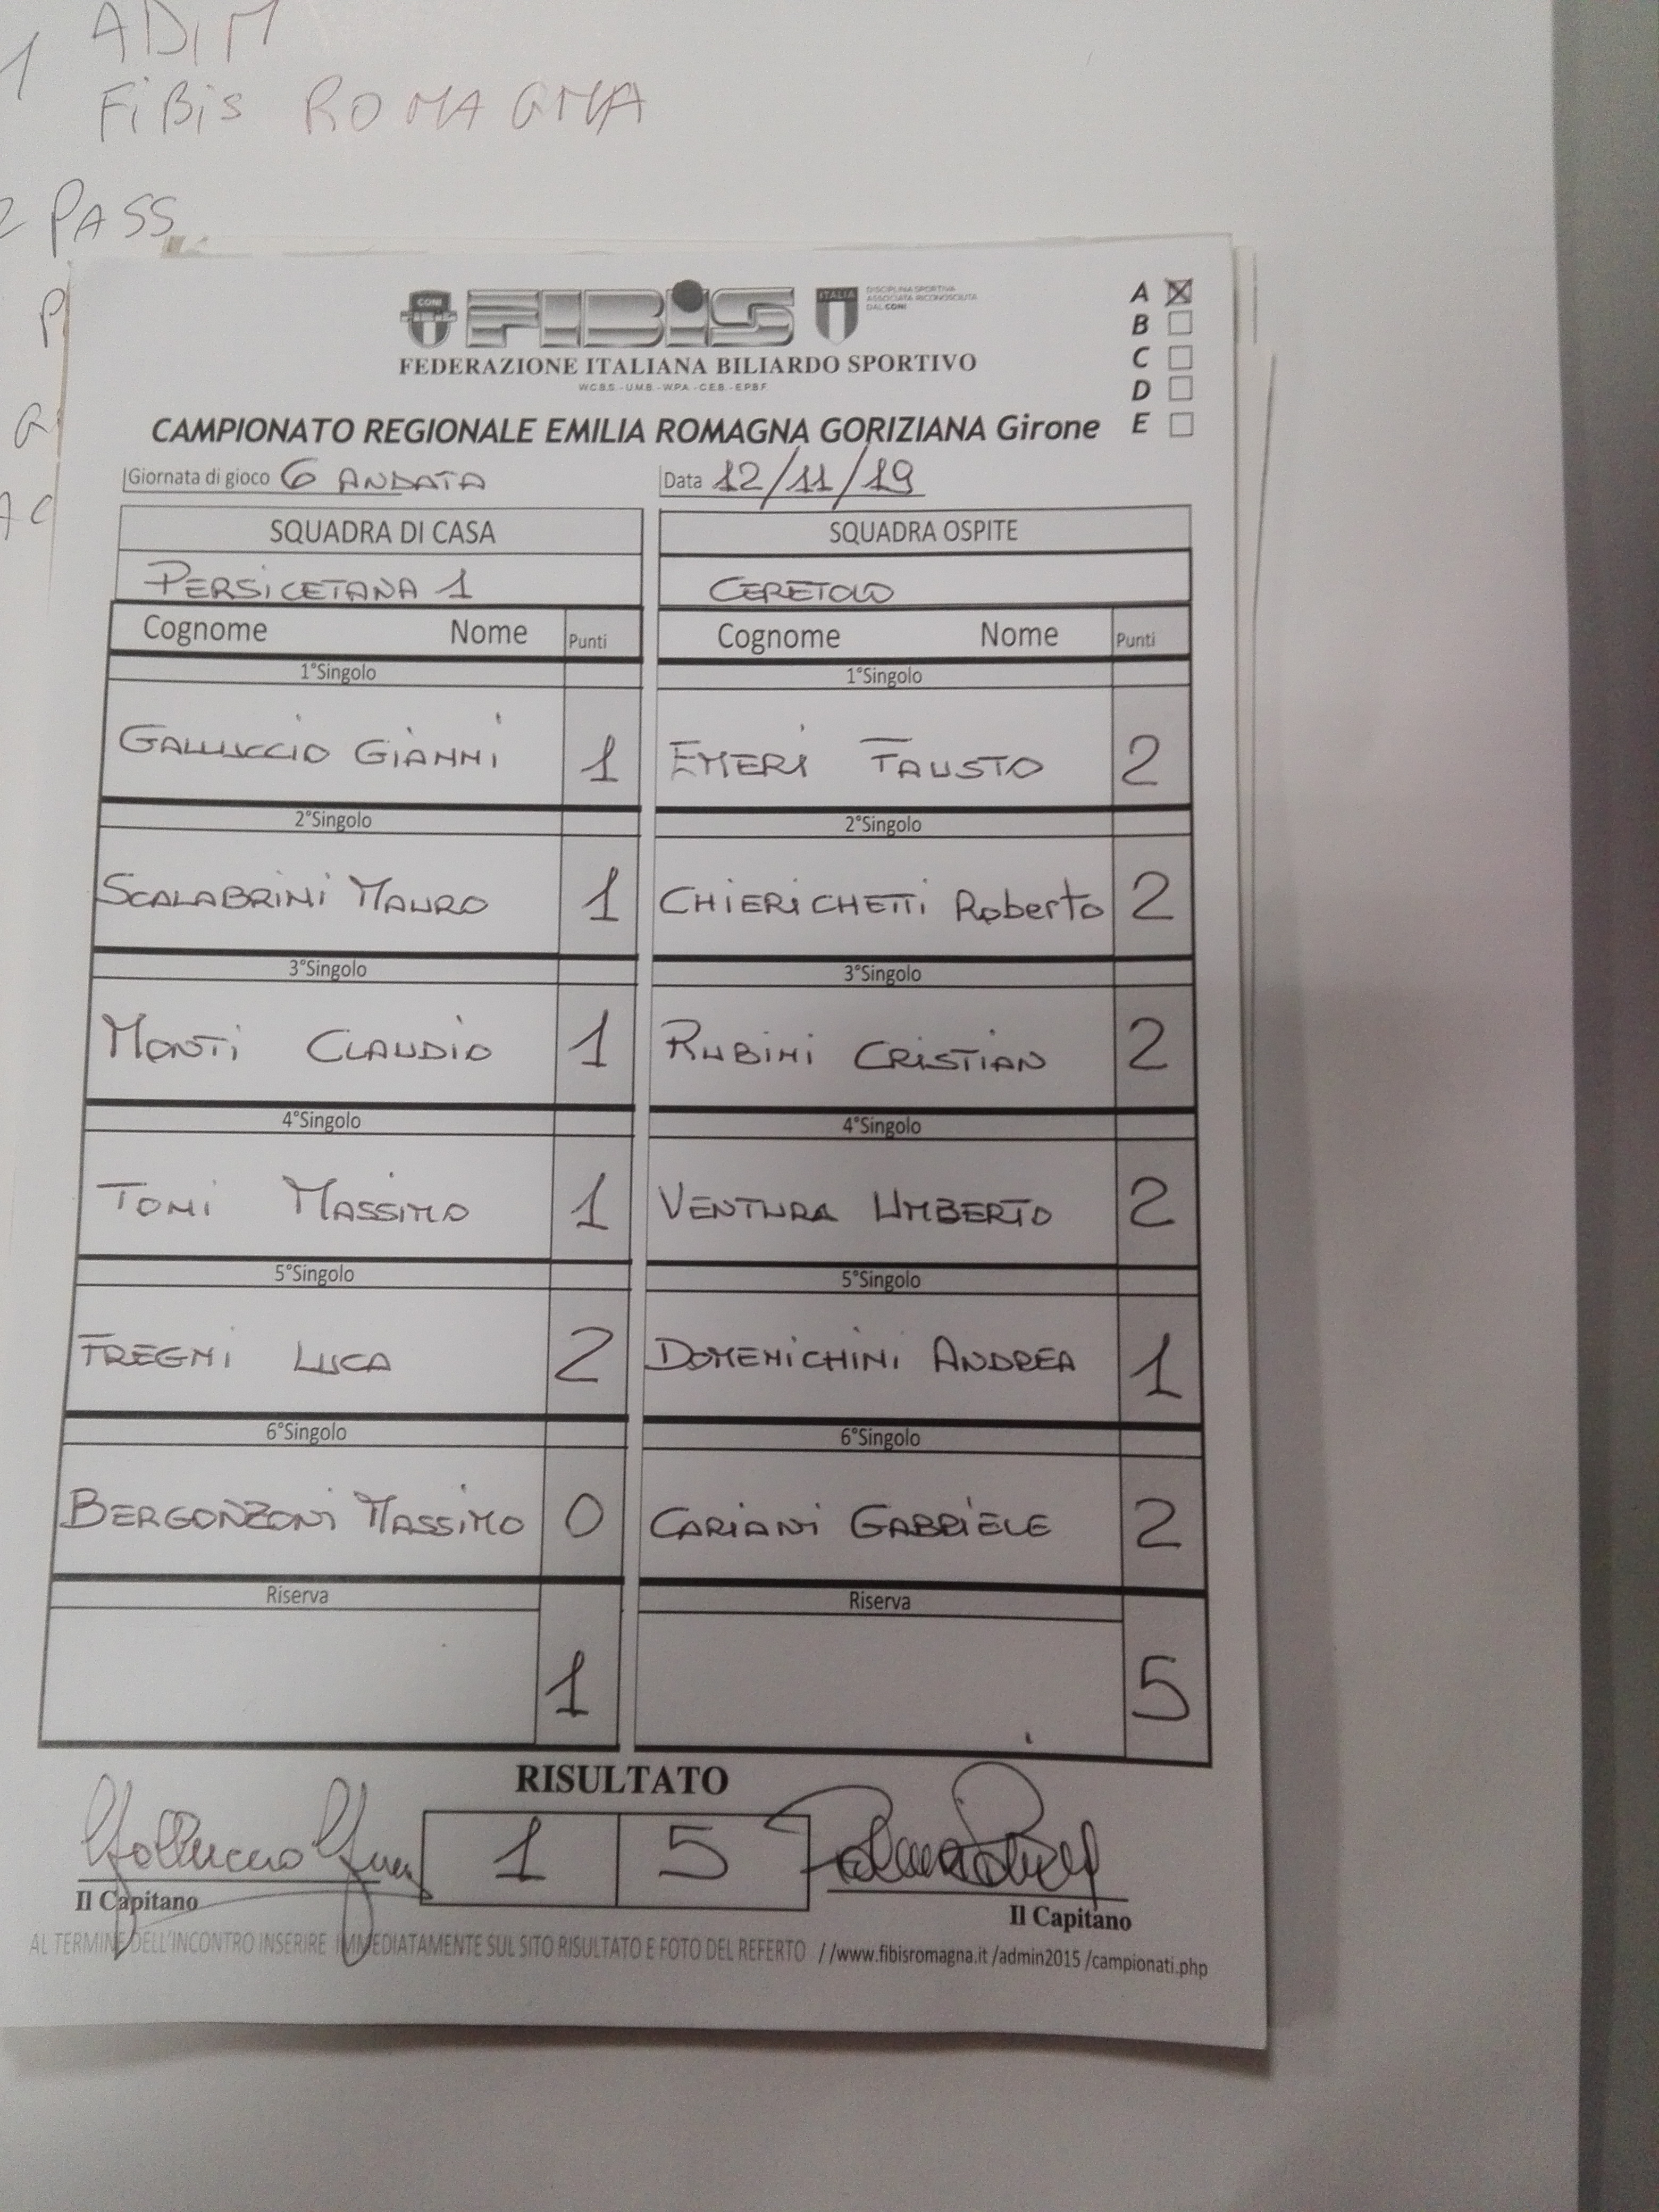 1 ADIM
FiBis ROMAGNA
2 PASS
CONI
FIBiS
ITALIA
DISCIPLINA SPORTIVA
ASSOCIATA RICONOSCIUTA
DAL CONI
FEDERAZIONE ITALIANA BILIARDO SPORTIVO
W.C.B.S. - U.M.B. - W.P.A. - C.E.B. - E.P.B.F.
A
B
C
D
E
CAMPIONATO REGIONALE EMILIA ROMAGNA GORIZIANA Girone
Giornata di gioco 6 ANDATA Data 12/11/19
SQUADRA DI CASA SQUADRA OSPITE
PERSiCETANA 1 CERETOLO
Cognome Nome Punti Cognome Nome Punti
1°Singolo 1°Singolo
GALLUCCIO GiANNi 1 EMERi FAUSTO 2
2°Singolo 2°Singolo
SCALABRiNi MAURO 1 CHiERiCHETTi Roberto 2
3°Singolo 3°Singolo
MONTi CLAUDiO 1 RUBiNi CRiSTiAN 2
4°Singolo 4°Singolo
TONi MASSiMO 1 VENTURA UMBERTO 2
5°Singolo 5°Singolo
FREGNi LUCA 2 DOMENiCHiNi ANDREA 1
6°Singolo 6°Singolo
BERGONZONi MASSiMO 0 CARiANi GABRiELE 2
Riserva Riserva
1 5
RISULTATO
1 5
Il Capitano Il Capitano
AL TERMINE DELL'INCONTRO INSERIRE IMMEDIATAMENTE SUL SITO RISULTATO E FOTO DEL REFERTO //www.fibisromagna.it /admin2015 /campionati.php